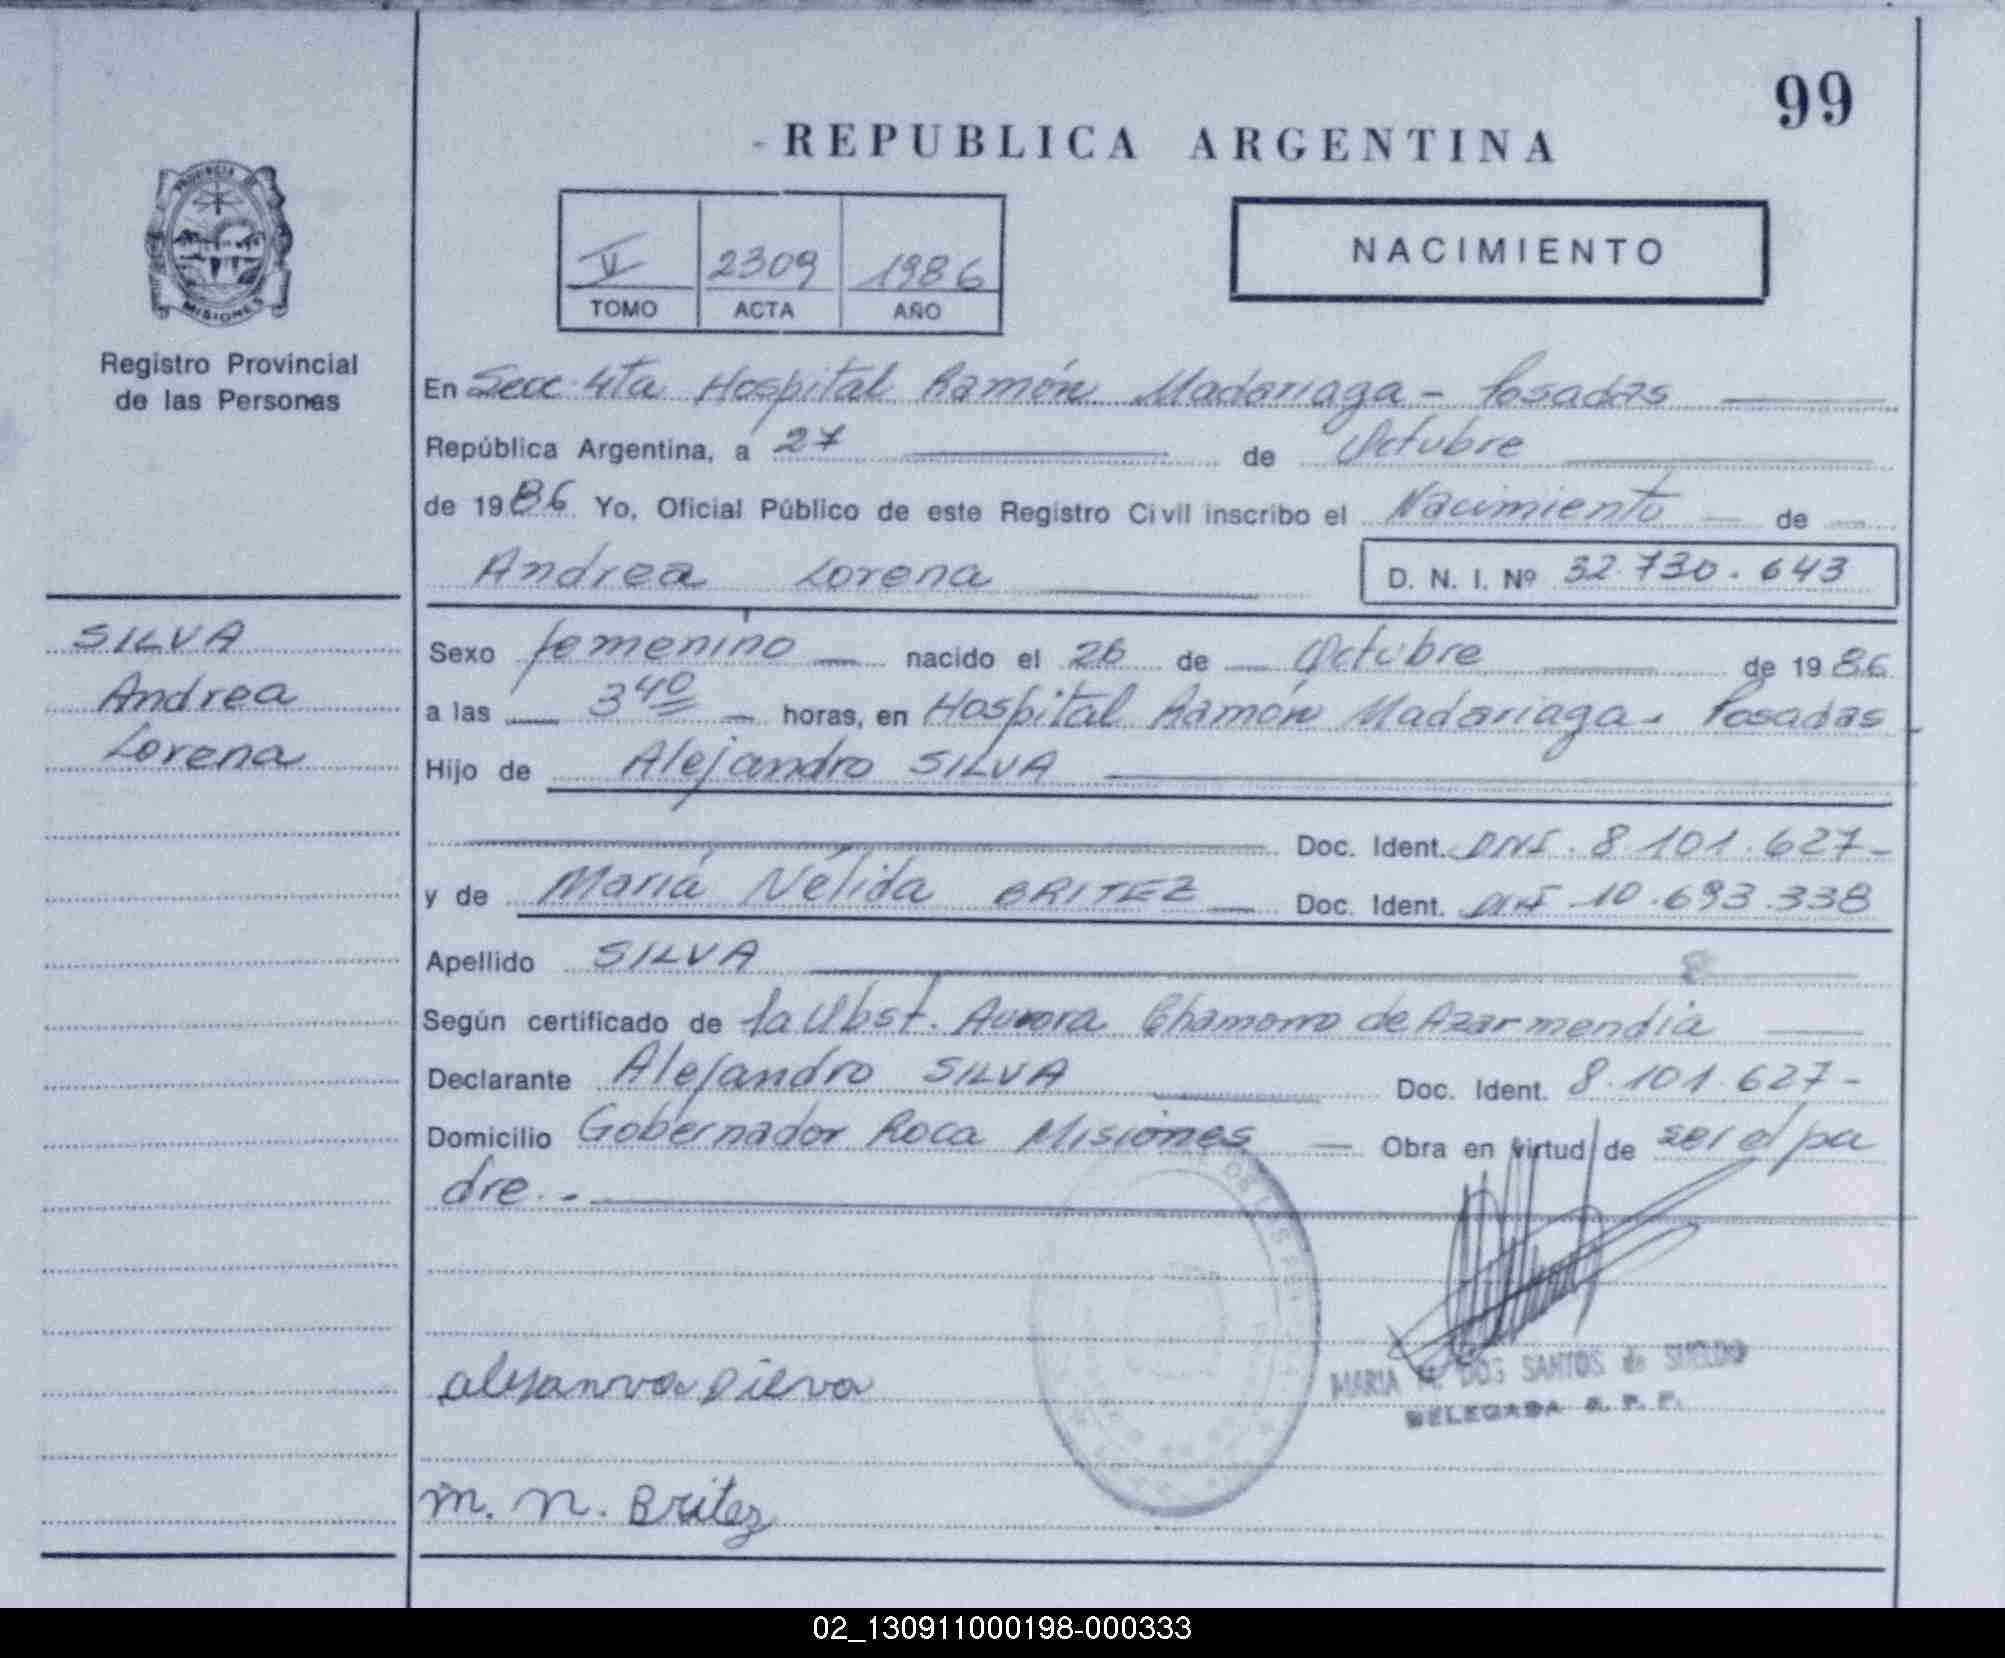 99
REPUBLICA ARGENTINA
PROVINCIA DE
MISIONES
Registro Provincial
de las Personas
V 2309 1986
TOMO ACTA AÑO
NACIMIENTO
En Secc. 4ta Hospital Ramón Madariaga - Posadas
República Argentina, a 27 de Octubre
de 1986 Yo, Oficial Público de este Registro Civil inscribo el Nacimiento de
Andrea Lorena D. N. I. Nº 32.730.643
SILVA
Andrea
Lorena
Sexo femenino nacido el 26 de Octubre de 1986
a las 3 40 horas, en Hospital Ramón Madariaga. Posadas
Hijo de Alejandro SILVA
Doc. Ident. DNI. 8.101.627-
y de María Nélida BRITEZ Doc. Ident. DNI 10.693.338
Apellido SILVA
Según certificado de la Obst. Aurora Chamorro de Azarmendia
Declarante Alejandro SILVA Doc. Ident. 8.101.627-
Domicilio Gobernador Roca Misiones Obra en virtud de ser el pa
dre.-
MARIA M. DOS SANTOS de SUELDO
DELEGADA R. P. P.
m. n. Britez
02_130911000198-000333